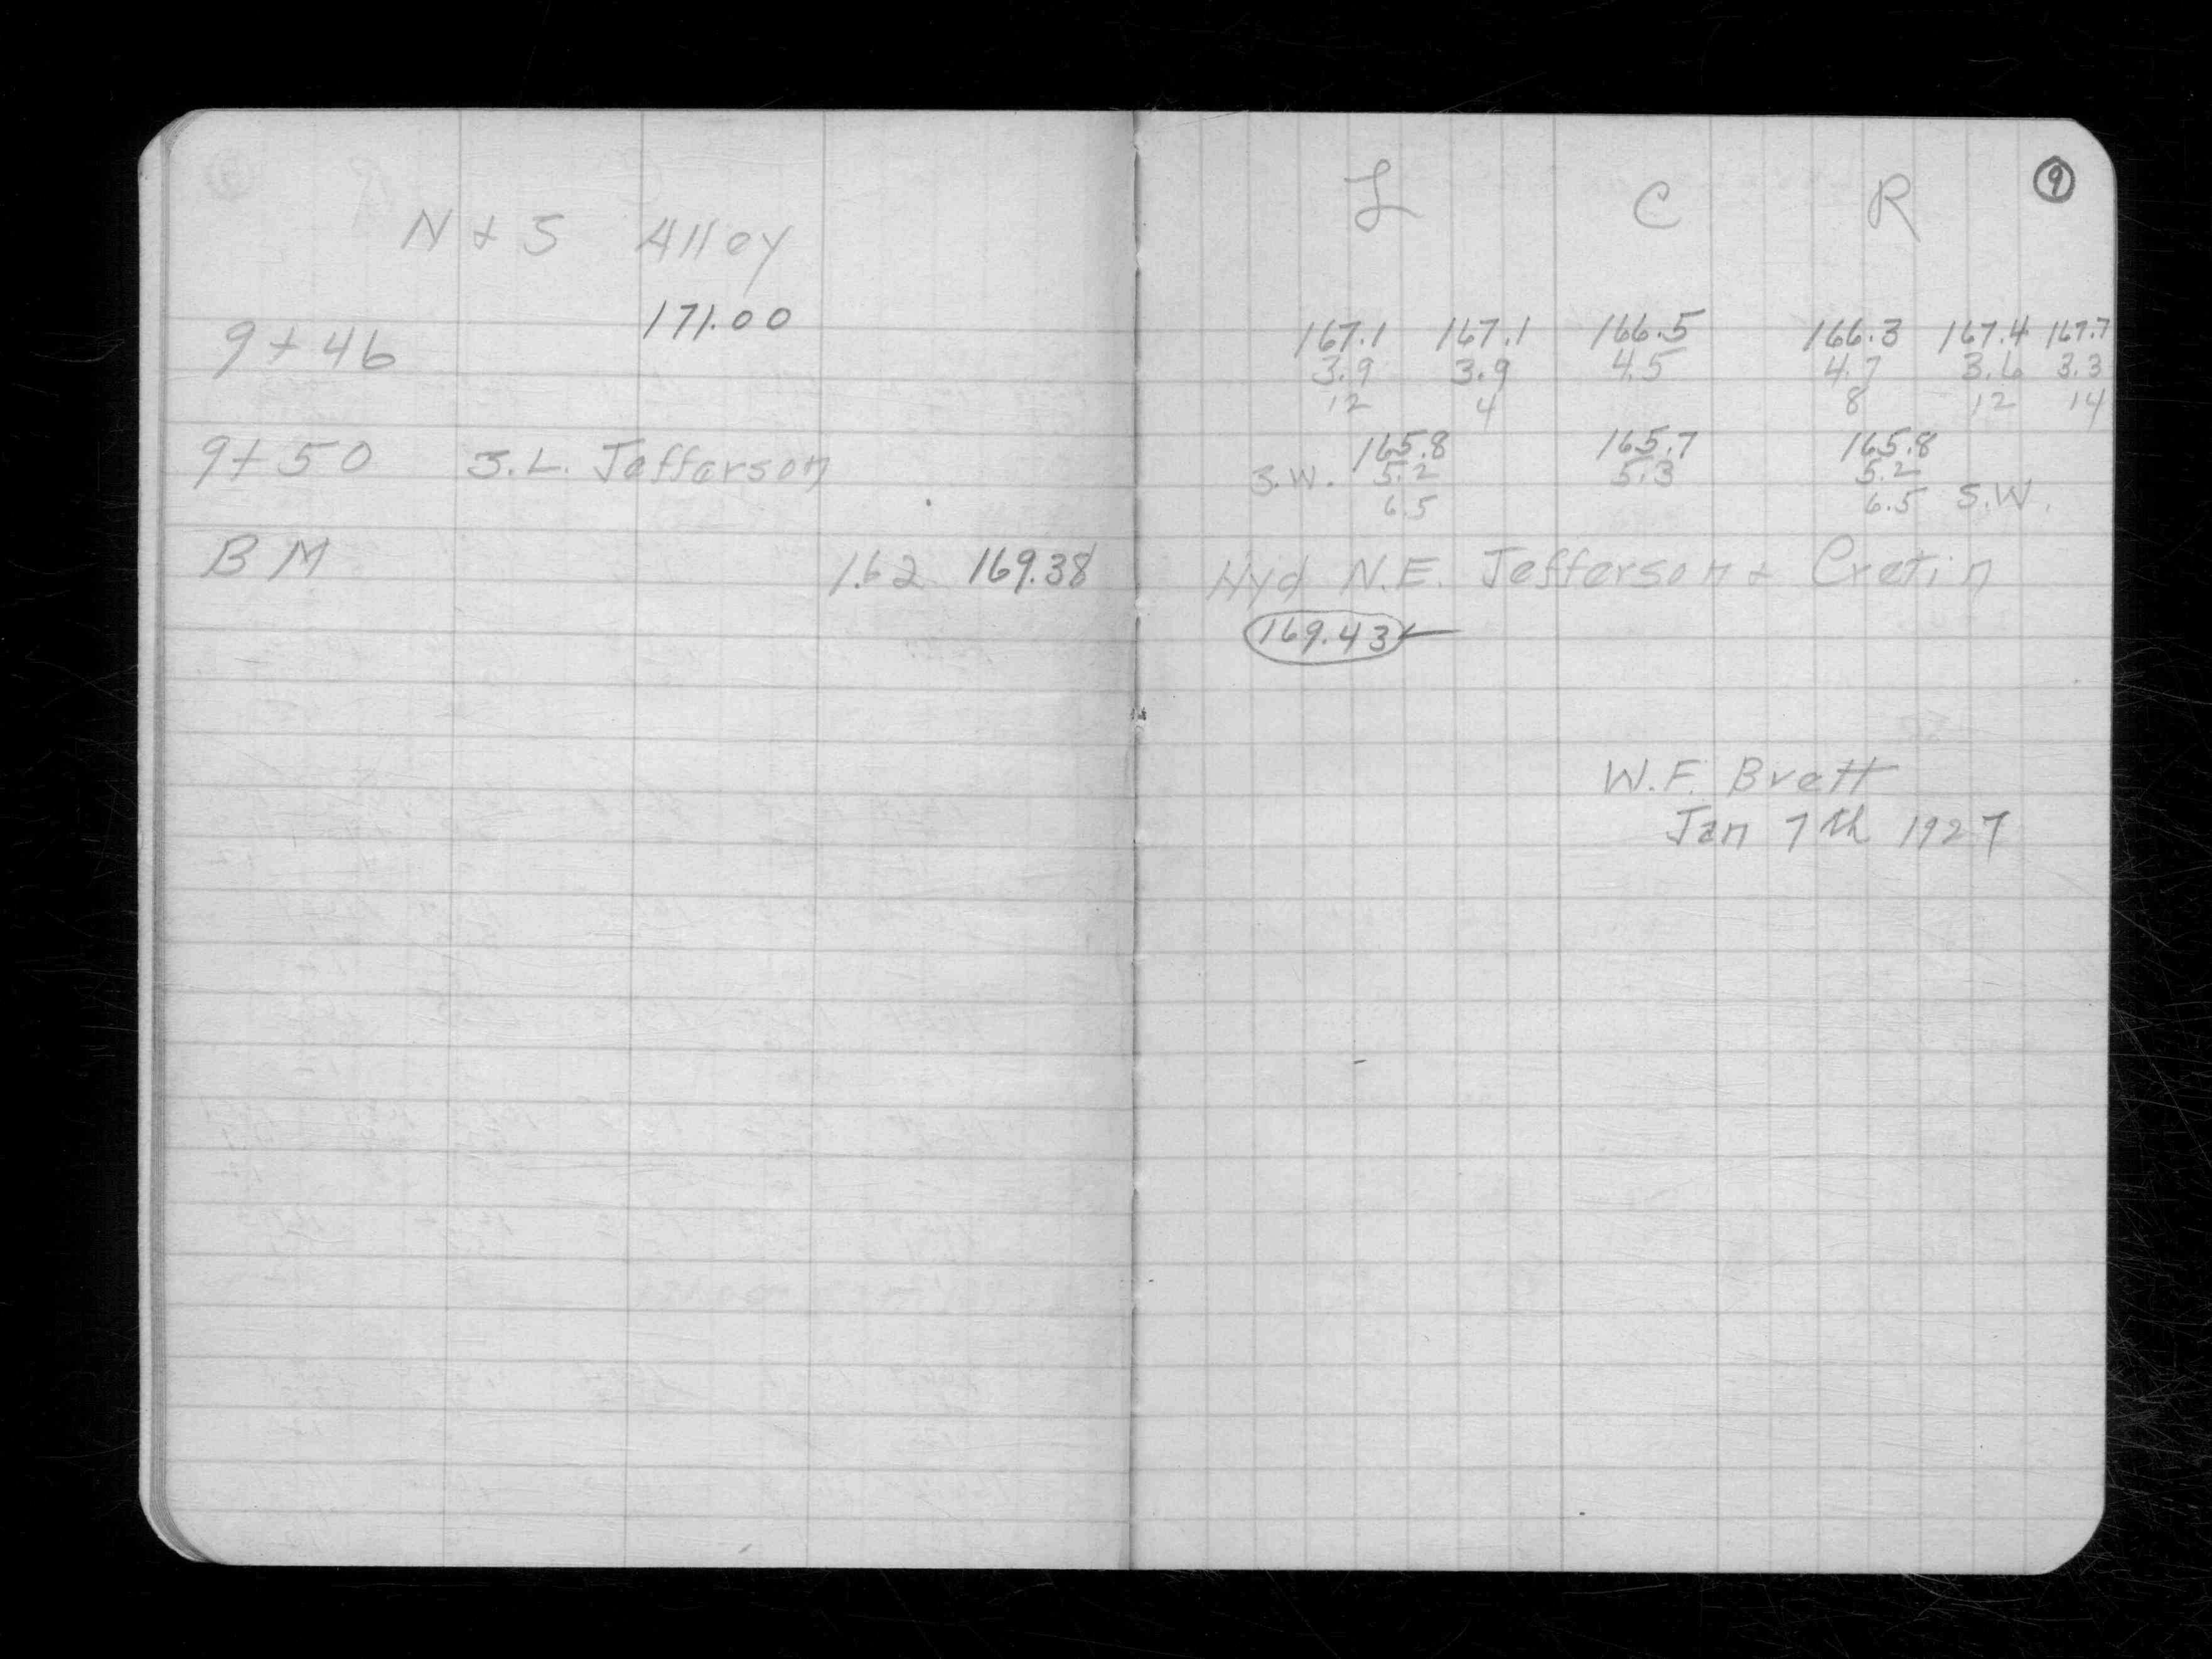 N & S Alley
171.00
9+46
9+50 S.L. Jefferson
BM 1.62 169.38
9
L C R
167.1 167.1 166.5 166.3 167.4 167.7
3.9 3.9 4.5 4.7 3.6 3.3
12 4 8 12 14
165.8 165.7 165.8
S.W. 5.2 5.3 5.2
6.5 6.5 S.W.
Hyd N.E. Jefferson & Cretin
169.43
W.F. Brett
Jan 7th 1927